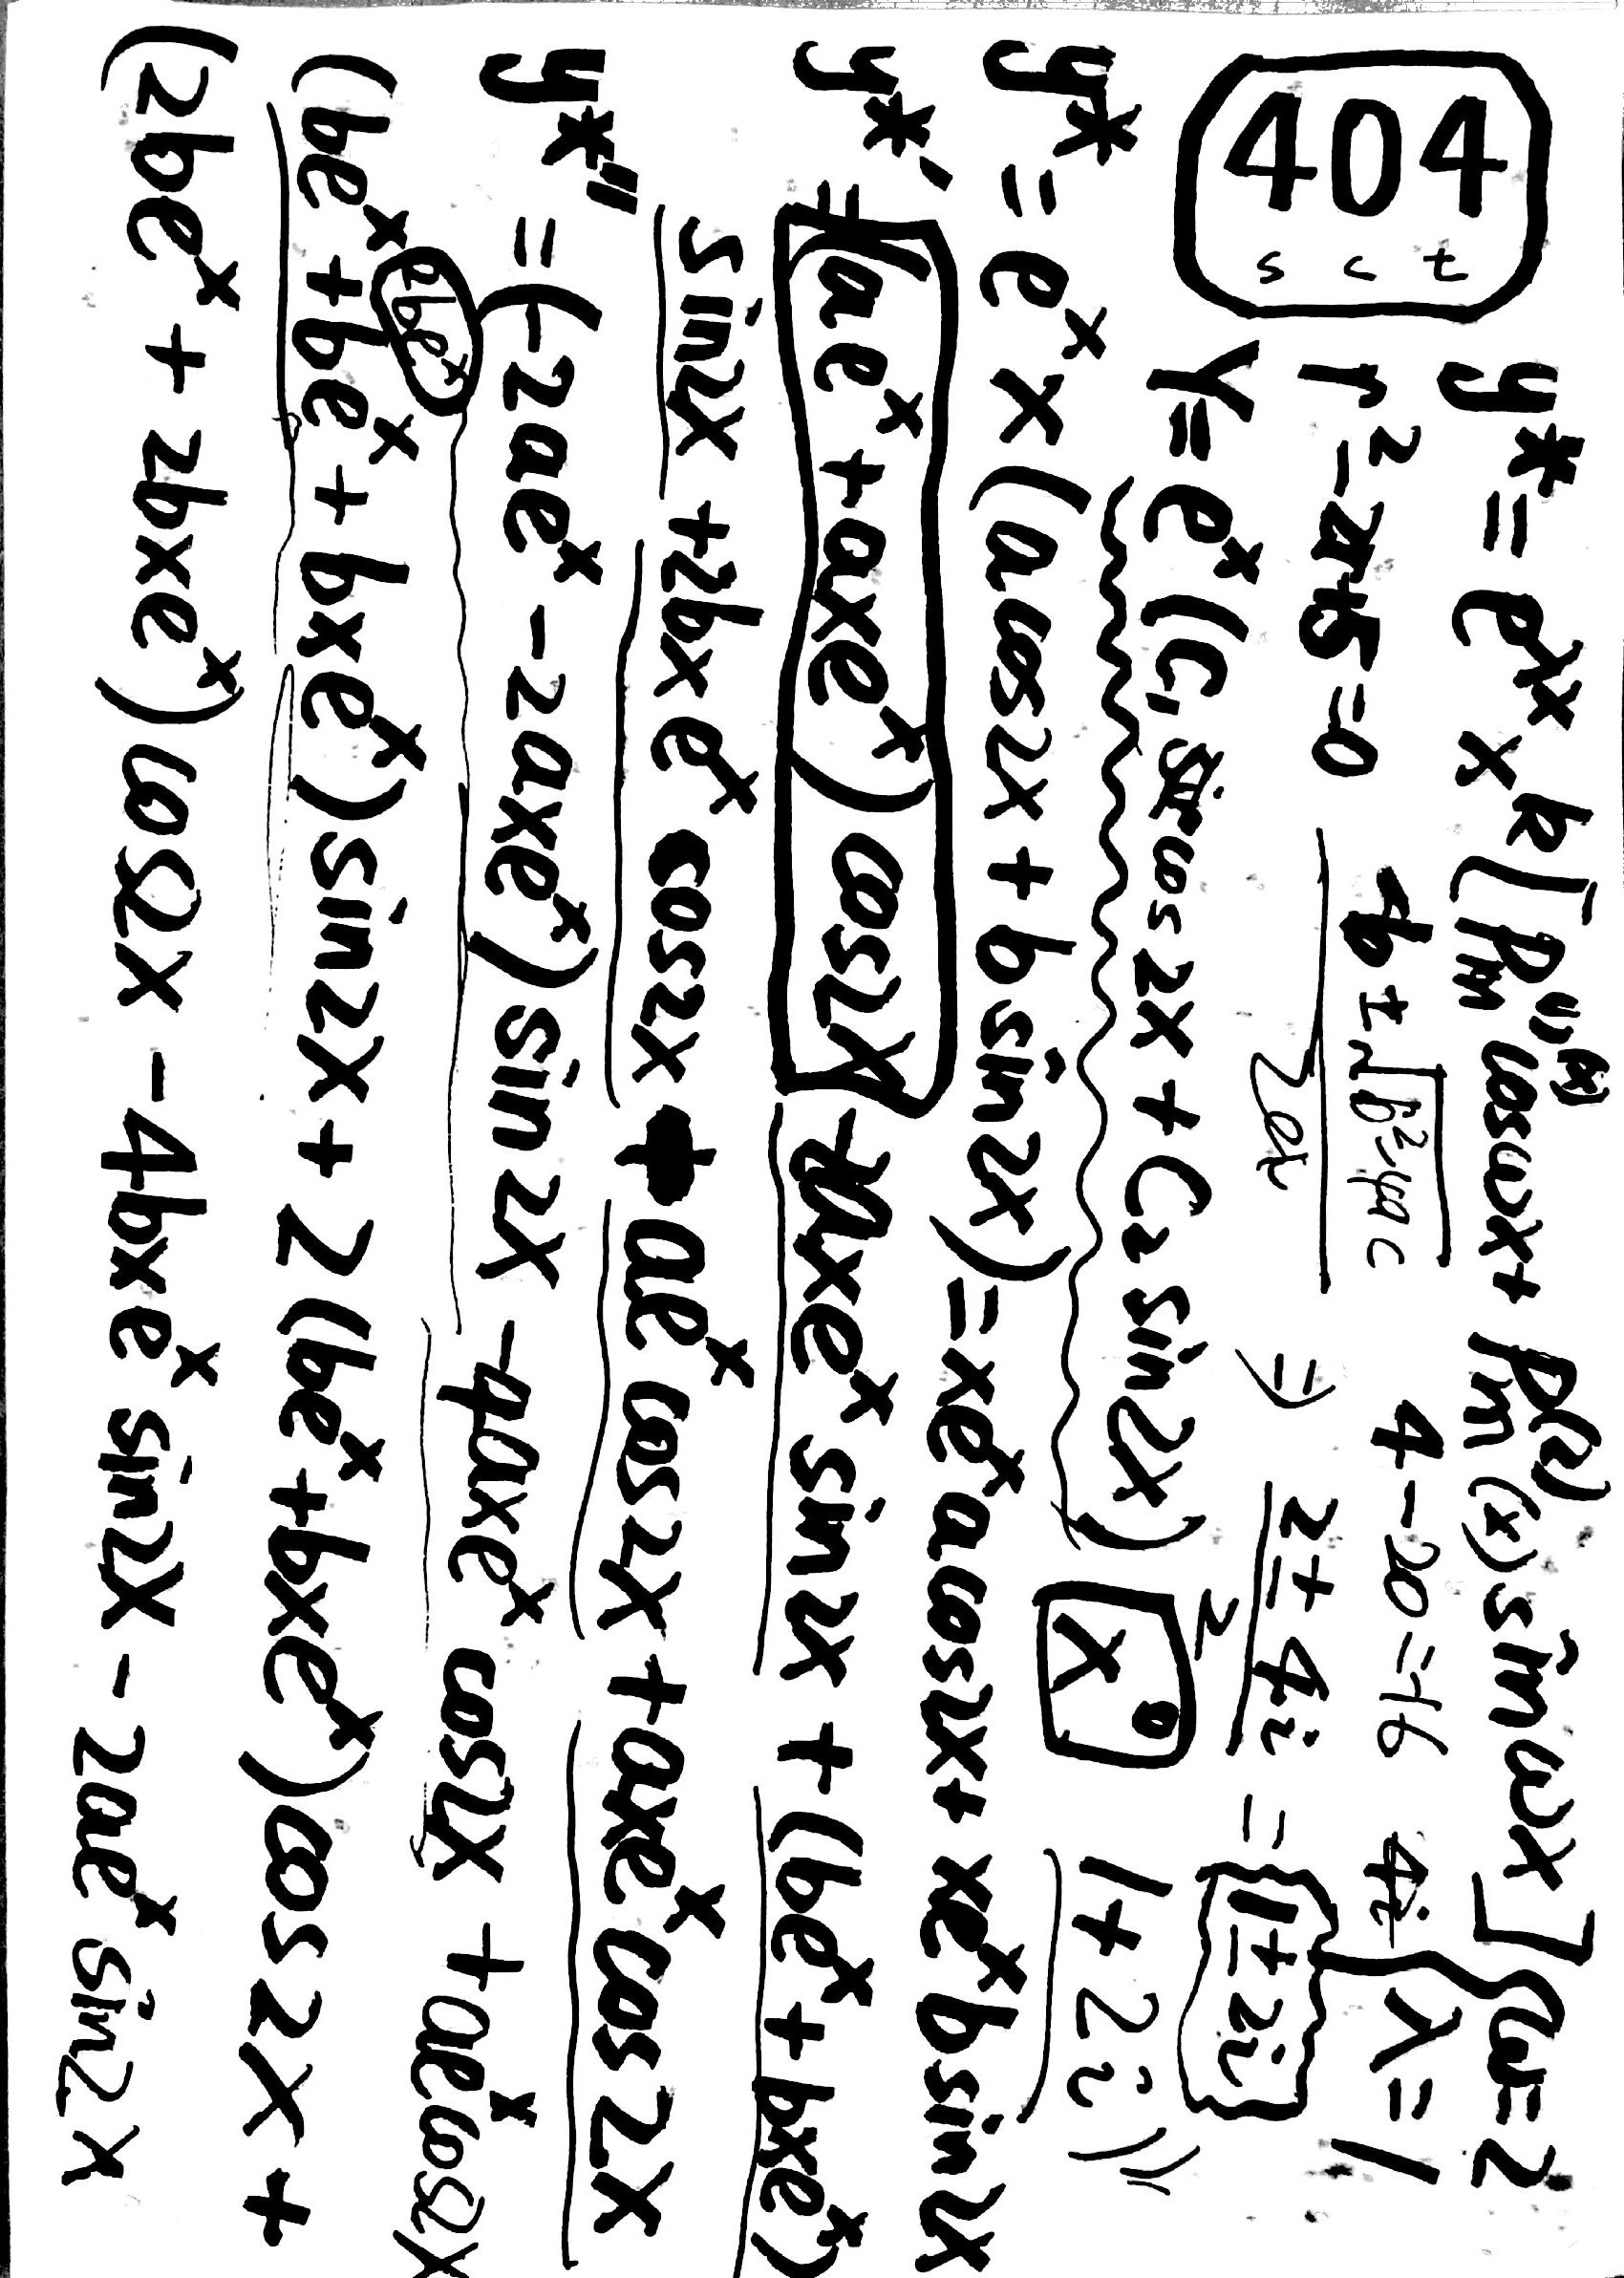 404
s c t
y* = e^x x^k [Pm^(1)(x) cosωx + Pm^(2)(x) sin ωx] (ω=2
λ=1
r²-2r+5=0
-b ± √b²-4ac
4-20=-16 4i
⇒ 2±4i / 2 = 1±2i
Y= e^x (C₁ cos 2x + C₂ sin 2x)
x⁰
1+2i
y* = e^x x (a cos2x + b sin 2x) = xe^x a cos2x + xe^x b sin 2x
y*' = (ae^x + axe^x) cos2x - 2axe^x sin 2x + (be^x + bxe^x)
sin2x + 2bx e^x cos2x + ae^x cos2x + axe^x cos 2x
y*'' = (-2ae^x - 2axe^x) sin 2x - 4axe^x cos2x + ae^x cos2x
(be^x + be^x + bxe^x) sin2x + 2 (be^x + bxe^x) cos 2x +
(2be^x + 2bxe^x) cos2x - 4bxe^x sin2x - 2ae^x sin2x